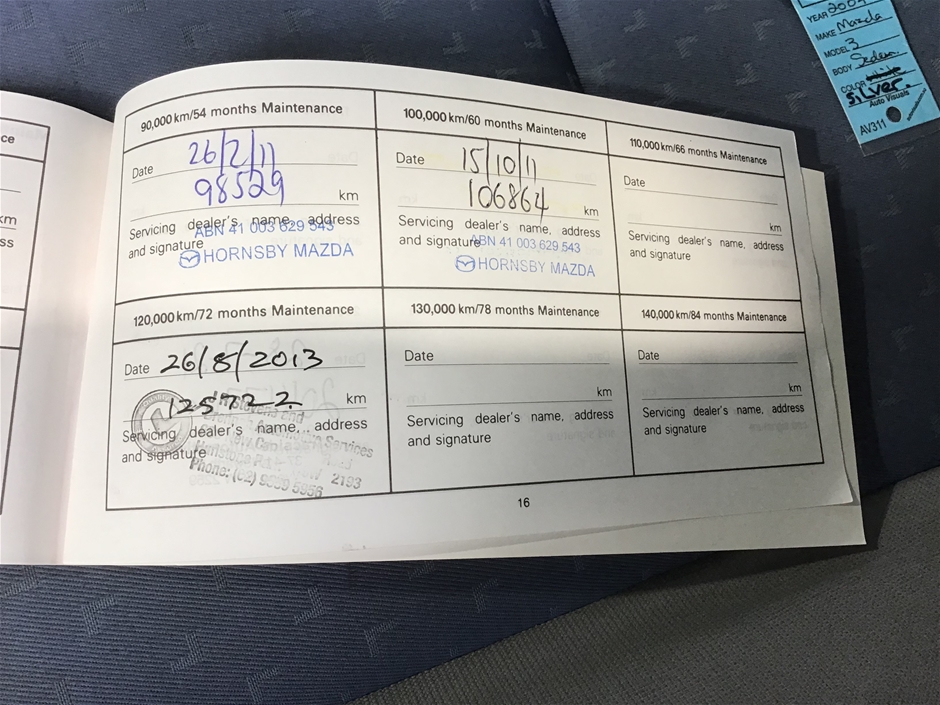 ce
km
ss
90,000 km/54 months Maintenance
Date 26/2/11
98529 km
Servicing dealer's name, address
and signature
ABN 41 003 629 543
HORNSBY MAZDA
100,000 km/60 months Maintenance
Date 15/10/11
106864 km
Servicing dealer's name, address
and signature
ABN 41 003 629 543
HORNSBY MAZDA
110,000 km/66 months Maintenance
Date
km
Servicing dealer's name, address
and signature
120,000 km/72 months Maintenance
Date 26/8/2013
125722 km
Servicing dealer's name, address
and signature
and
Services
2193
Phone: (02)
130,000 km/78 months Maintenance
Date
km
Servicing dealer's name, address
and signature
140,000 km/84 months Maintenance
Date
km
Servicing dealer's name, address
and signature
16
YEAR
MAKE Mazda
MODEL 3
BODY Sedan
COLOR
SILVER.
Auto Visuals
AV311